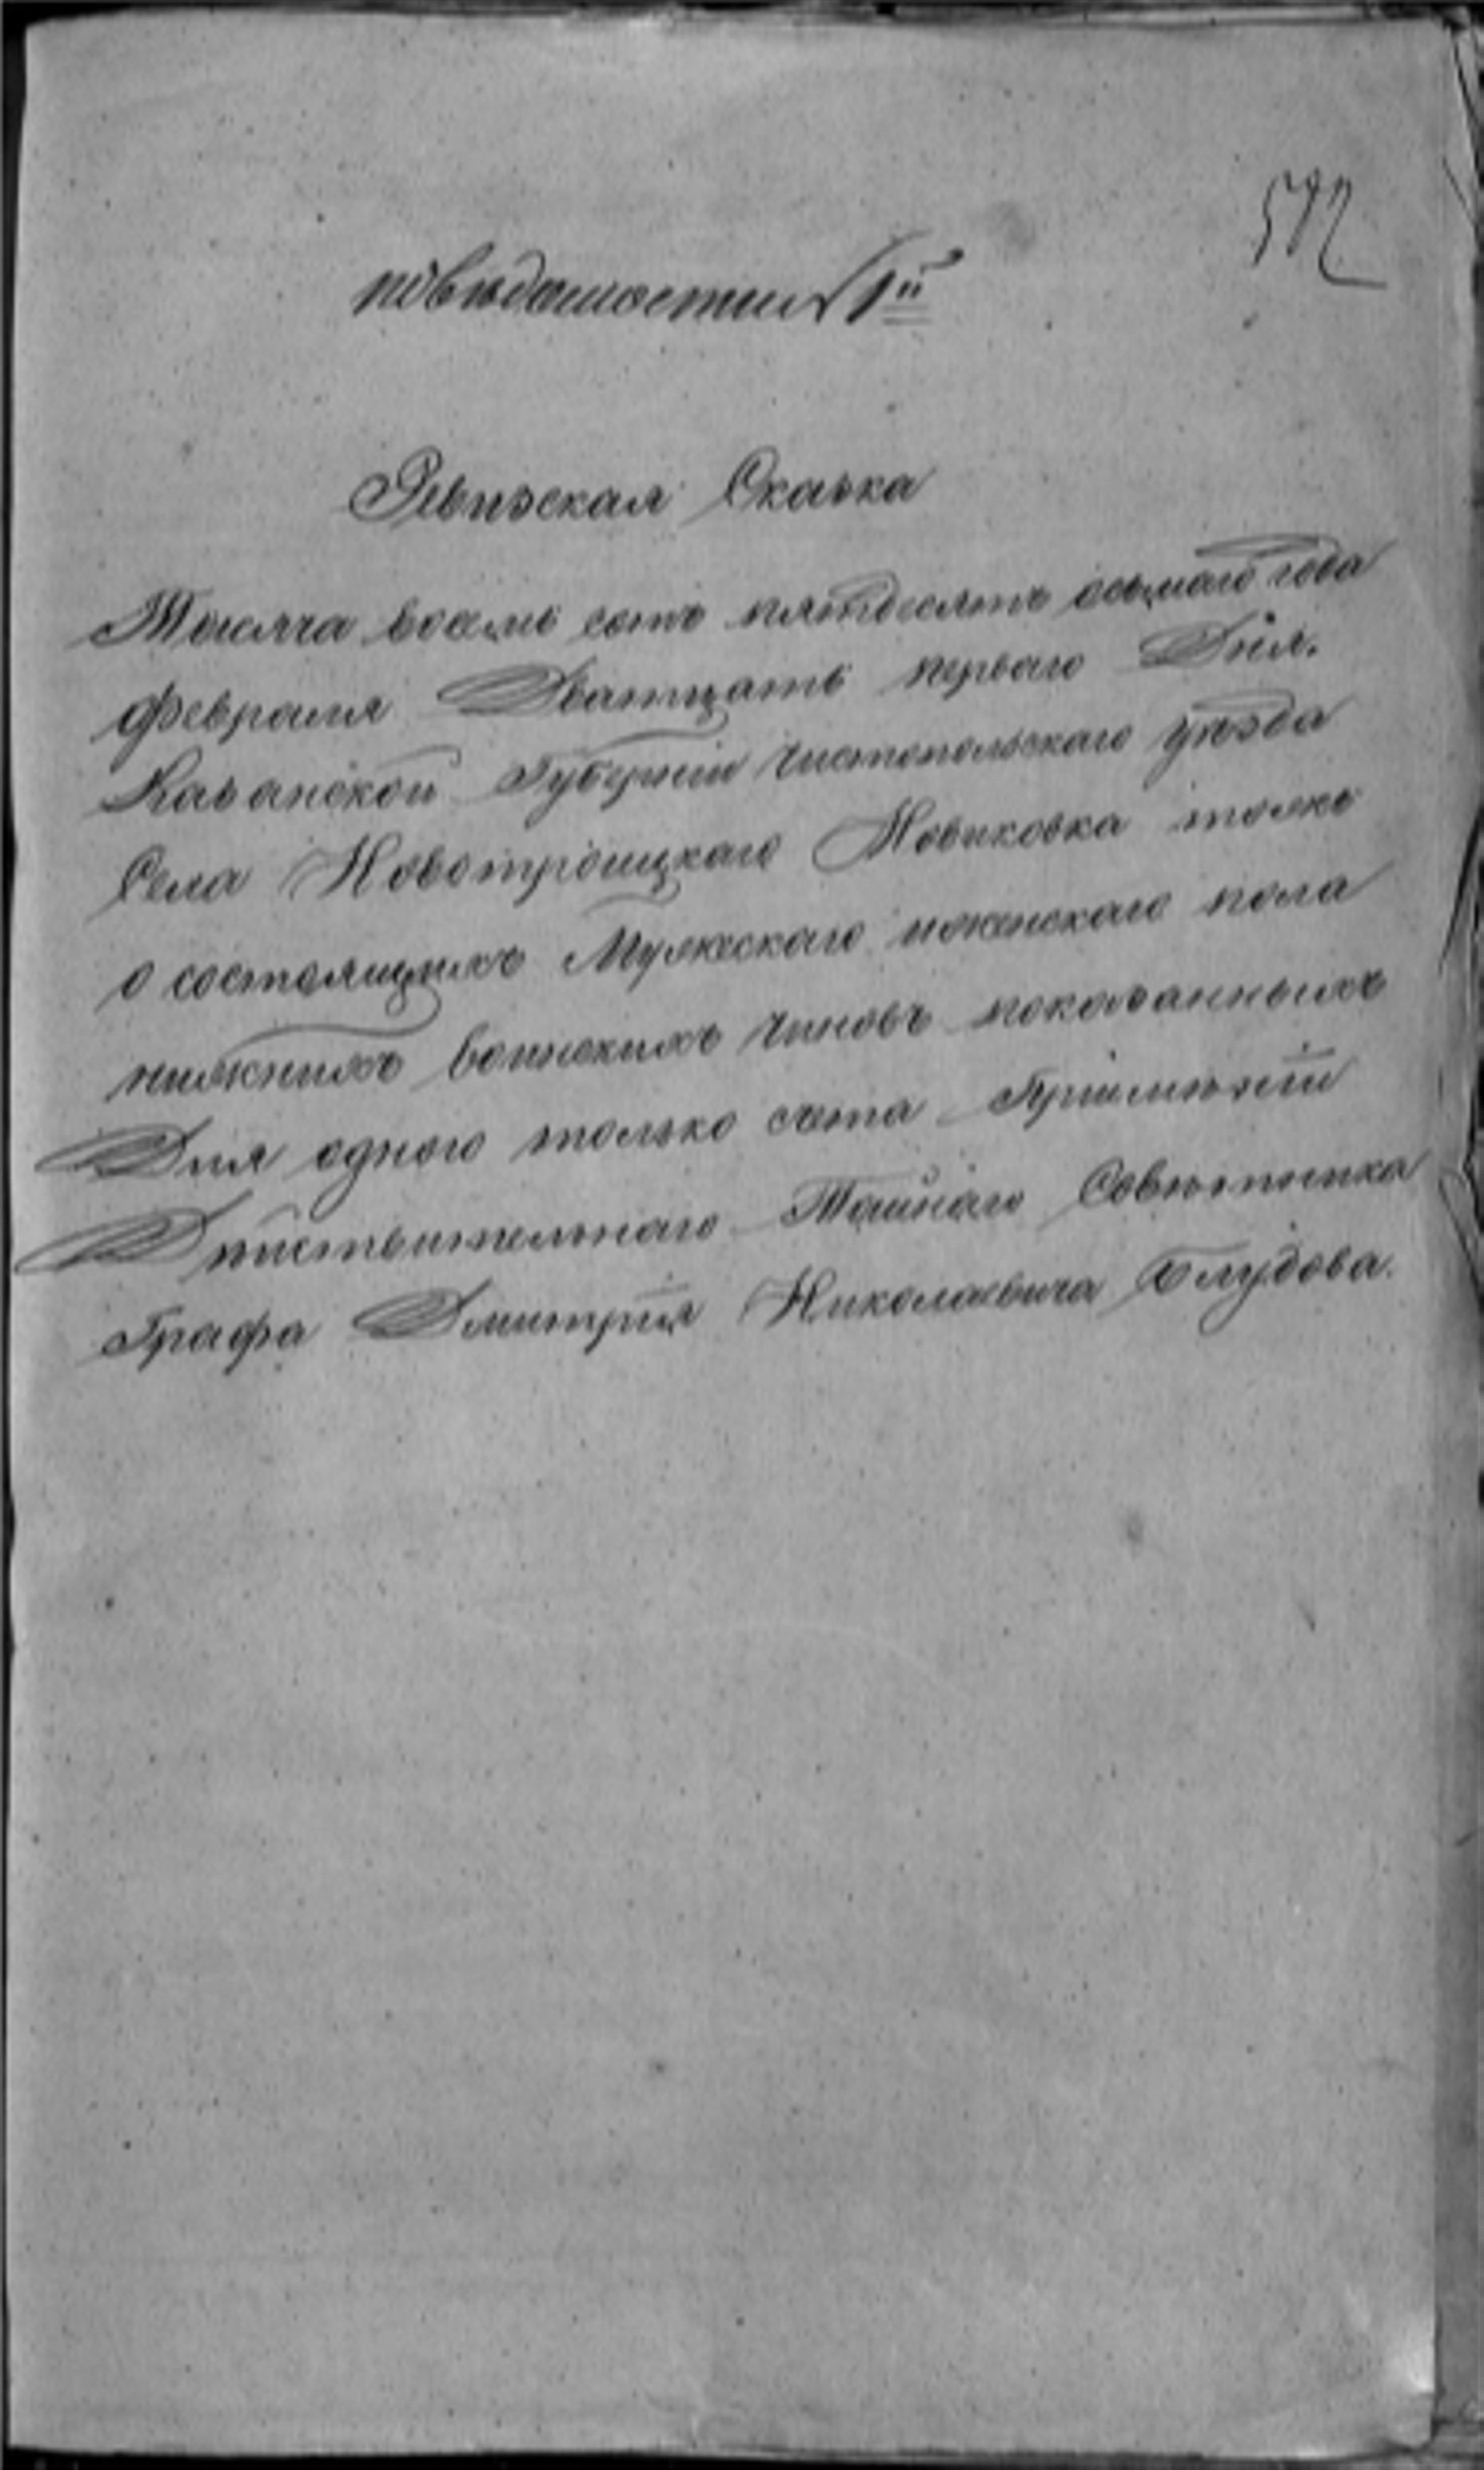 592
по вѣдомости 1й
Ревизская Сказка
Тысяча восемь сотъ пятдесятъ осьмаго года
февраля Дватцать перваго Дня.
Казанской Губерніи Чистопольскаго уѣзда
Села Новотроицкаго Новиковка тожъ
о состоящихъ Мужескаго и женскаго пола
нижнихъ воинскихъ чиновъ показанныхъ
Для одного только счета При имѣніи
Дѣйствительнаго Тайнаго Совѣтника
Графа Дмитрія Николаевича Блудова.